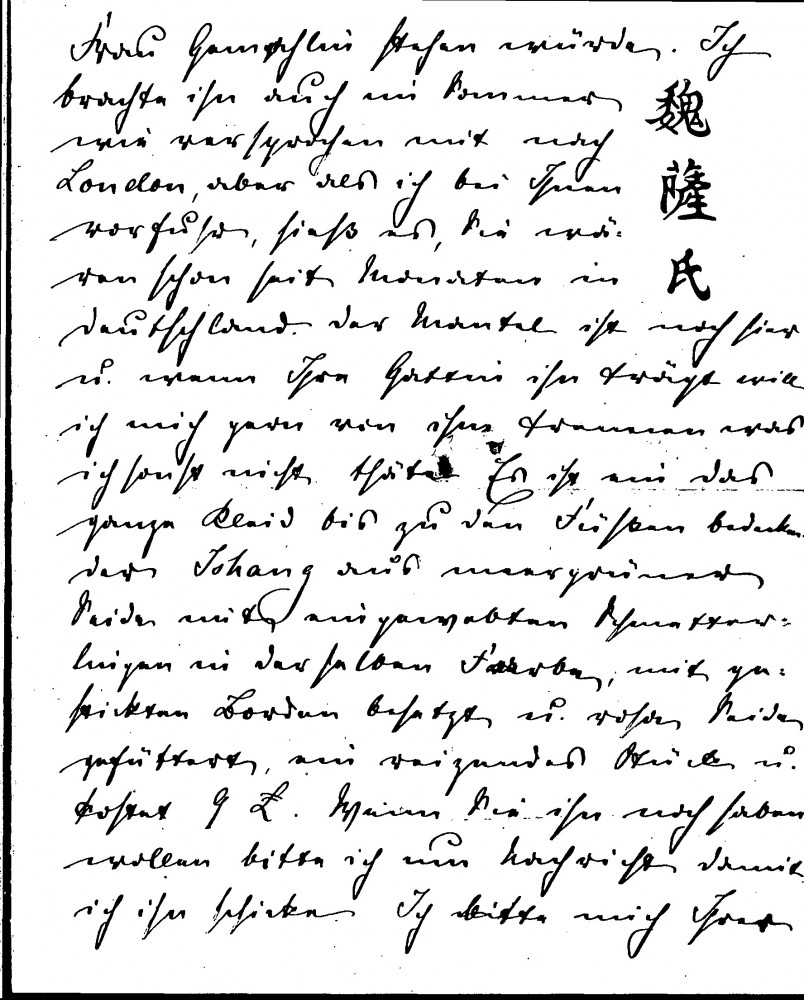 Frau Gemahlin stehen würde. Ich
brachte ihn auch im Sommer
wie versprochen mit nach
London, aber als ich bei Ihnen
vorfuhr, hieß es, Sie wä-
ren schon seit Monaten in
Deutschland. Der Mantel ist noch hier
u. wenn Ihre Gattin ihn trägt will
ich mich gern von ihm trennen was
ich sonst nicht thäte. Es ist ein das
ganze Kleid bis zu den Füßen bedecken-
der Ishang aus meergrüner
Seide mit eingewebten Schmetter-
lingen in derselben Farbe, mit ge-
stickten Borden besetzt u. rosa Seide
gefüttert, ein reizendes Stück u.
kostet 9 £. Wenn Sie ihn noch haben
wollen bitte ich um Nachricht damit
ich ihn schicke. Ich bitte mich Ihrer
魏
薩
氏